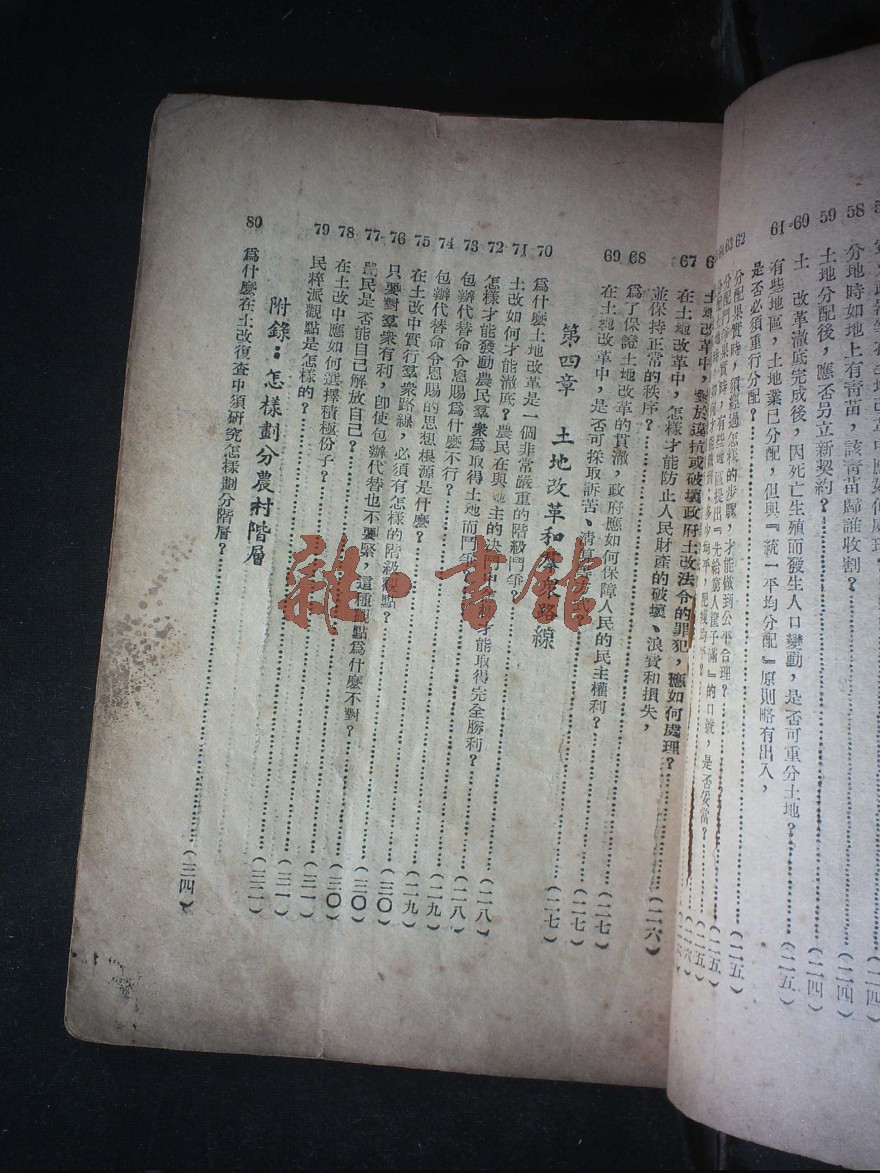 58 分地時如地上有靑苗，該靑苗歸誰收割？（二四）
59 土地分配後，應否另立新契約？（二四）
60 土 改革澈底完成後，因死亡生殖而發生人口變動，是否可重分土地？（二四）
61 有些地區，土地業已分配，但與『統一平均分配』原則略有出入，
是否必須重行分配？（二五）
62 分配果實時，須經過怎樣的步驟，才能做到公平合理？（二五）
63 分配鬥爭果實時，有些地區提出『先給窮人筐子滿』的口號，是否妥當？（二五）
土地改革中，對於違抗或破壞政府土改法令的罪犯，應如何處理？
67 在土地改革中，怎樣才能防止人民財產的破壞、浪費和損失，
並保持正常的秩序？（二六）
68 爲了保證土地改革的貫澈，政府應如何保障人民的民主權利？（二七）
69 在土地改革中，是否可採取訴苦、清算等方式？（二七）
第四章 土地改革和羣衆路線
70 爲什麼土地改革是一個非常嚴重的階級鬥爭？（二七）
71 土改如何才能澈底？農民在與地主的决鬥中 才能取得完全勝利？（二八）
72 怎樣才能發動農民羣衆爲取得土地而鬥爭？（二八）
73 包辦代替命令恩賜爲什麼不行？（二九）
74 包辦代替命令恩賜的思想根源是什麼？（二九）
75 在土改中實行羣衆路線，必須有怎樣的階級觀點？（三〇）
76 只要對羣衆有利，卽使包辦代替也不要緊，這種觀點爲什麼不對？（三〇）
77 農民是否能自己解放自己？（三〇）
78 在土改中應如何選擇積極份子？（三一）
79 民粹派觀點是怎樣的？（三一）
附錄：怎樣劃分農村階層（三二）
80 爲什麼在土改復查中須研究怎樣劃分階層？（三四）
雜·書館